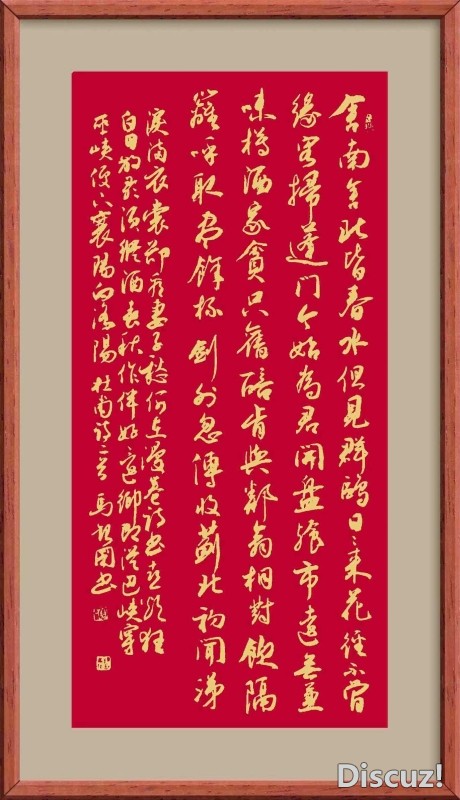 舍南舍北皆春水但見群鷗日々來花徑不曾
緣客掃蓬門今始為君開盤飧市遠無兼
味樽酒家貧只舊醅肯與鄰翁相對飲隔
籬呼取盡餘杯 劍外忽傳收薊北初聞涕
淚滿衣裳卻看妻子愁何在漫卷詩書喜欲狂
白日放歌須縱酒青春作伴好還鄉即從巴峽穿
巫峽便下襄陽向洛陽 杜甫詩二首 馬國書
Discuz!